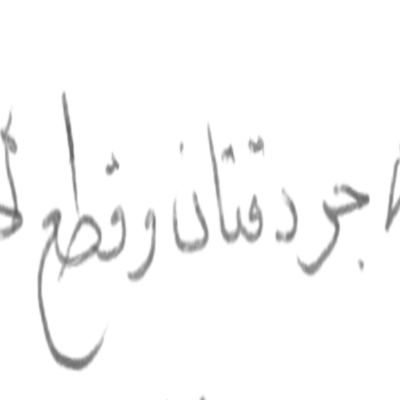 جردقتان وقطع